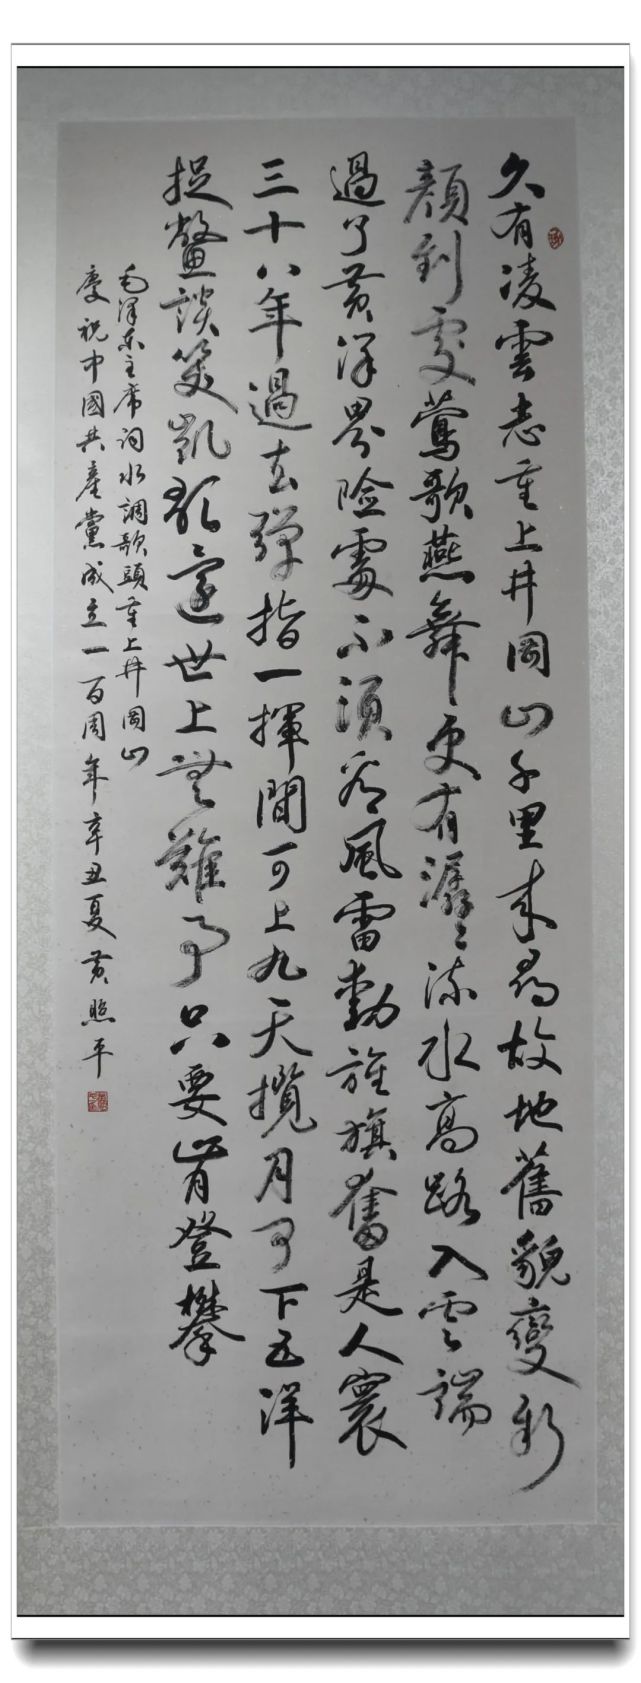 久有凌雲志重上井岡山千里来尋故地舊貌變新
顏到處鶯歌燕舞更有潺〻流水高路入雲端
過了黄洋界險處不須看風雷動旌旗奮是人寰
三十八年過去彈指一揮間可上九天攬月可下五洋
捉鱉談笑凱歌還世上無難事只要肯登攀
毛澤东主席词水調歌頭重上井岡山
慶祝中國共產黨成立一百周年辛丑夏黄照平